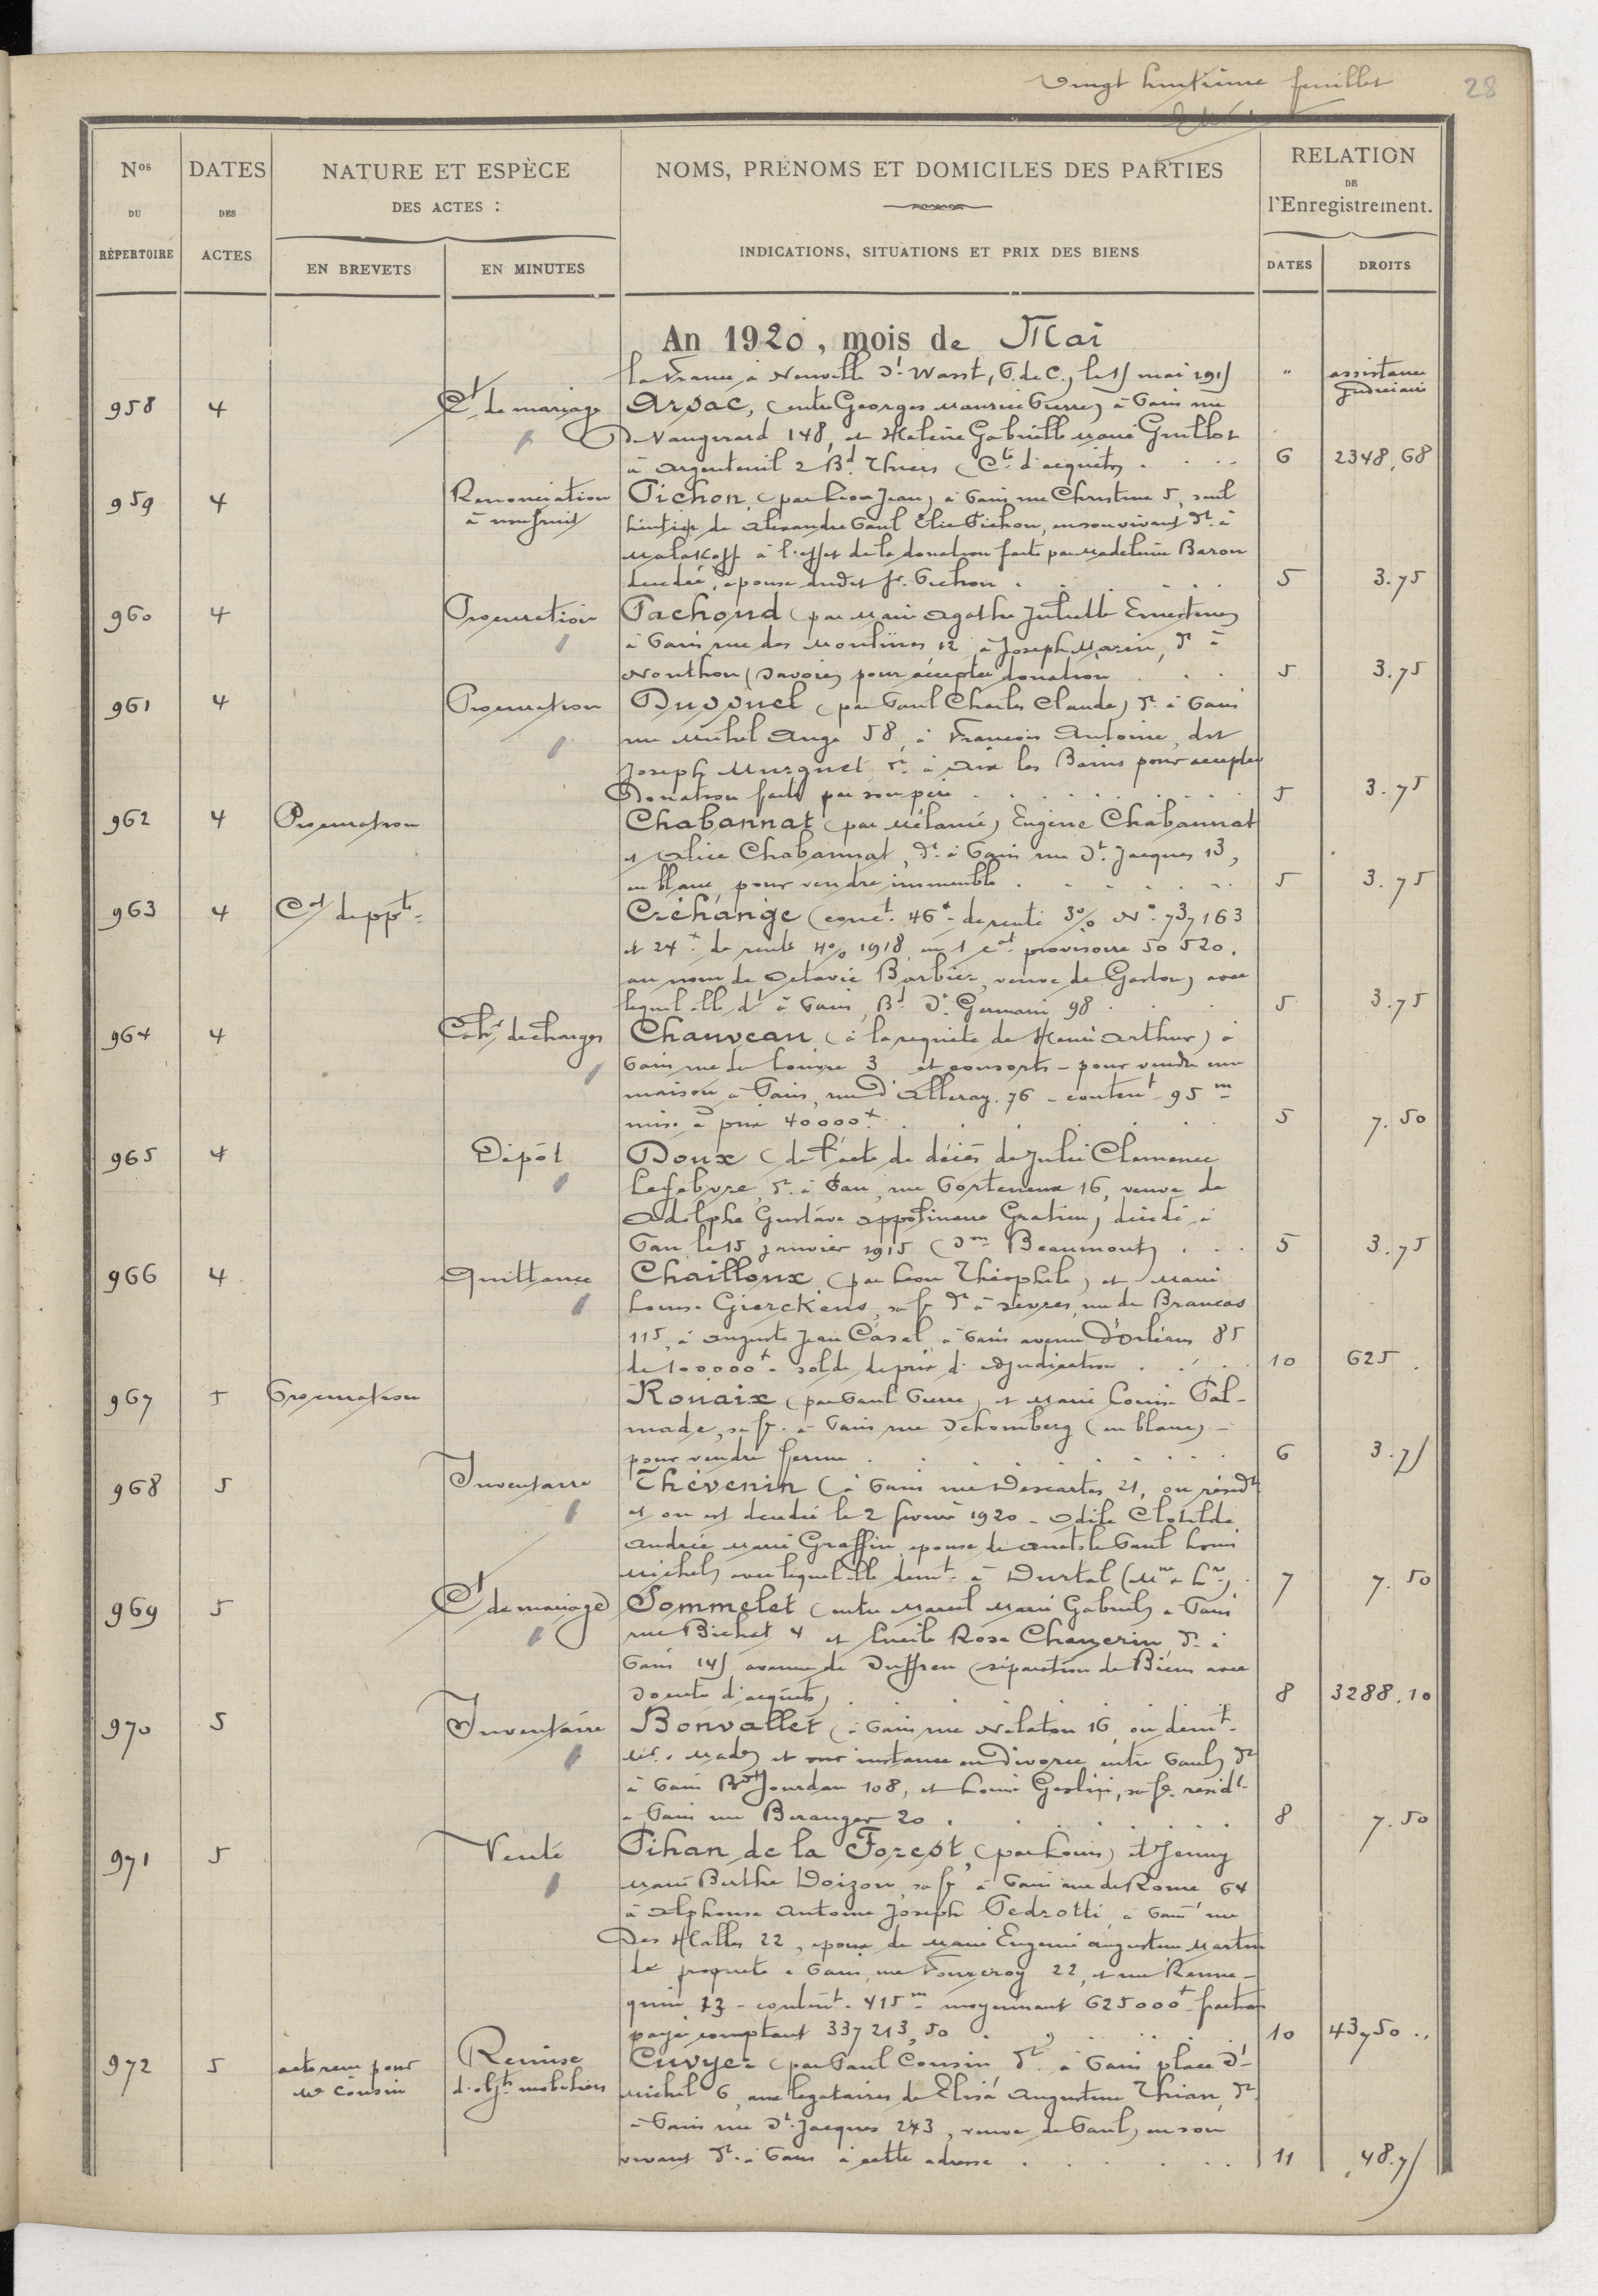 Vingt huitième feuillet
28
Nos DU RÉPERTOIRE
DATES DES ACTES
NATURE ET ESPÈCE
DES ACTES :
EN BREVETS
EN MINUTES
NOMS, PRÉNOMS ET DOMICILES DES PARTIES
INDICATIONS, SITUATIONS ET PRIX DES BIENS
RELATION
DE
l'Enregistrement.
DATES
DROITS
An 1920, mois de Mai
la France à Neuville St Waast, P. de C., le 15 mai 1915 " assistance judiciaire
958 4 Ct de mariage Arsac, (entre Georges Maurice Pierre) à Paris rue
de Vaugirard 148, et Helène Gabrielle Marie Guillot
à Argenteuil 2 Bd Thiers (Cté d'acquêts) 6 2348,68
959 4 Renonciation Pichon, (par Leon Jean) à Paris rue Christine 5, seul
à usufruit héritier de Alexandre Paul Elie Pichon, en son vivant dt à
Malakoff à l'effet de la donation faite par Madeleine Baron
decedée, épouse dudit Sr. Pichon 5 3.75
960 4 Procuration Pachoud (par Marie Agathe Juliette Ernestine)
à Paris rue des Moulines 12 à Joseph Marin, dt à
Nonthon (Savoie) pour accepter donation 5 3.75
961 4 Procuration Dussuel (par Paul Charles Claude) dt à Paris
rue Michel Ange 58, à François Antoine, dit
Joseph Murguet dt à Aix les Bains pour accepter
Donation faite par son père 5 3.75
962 4 Procuration Chabannat (par Mélanie) Eugène Chabannat
et Alice Chabannat, dt à Paris rue St Jacques 13,
en blanc, pour vendre immeuble 5 3.75
963 4 Cat de ppté Créhange (conct. 46f de rente 3% No 737163
et 24f de rente 4% 1918 en 1 cat provisoire 50520.
au nom de Octavie Barbier, veuve de Gaston) avec
lequel elle dt à Paris, Bd St Germain 98 5 3.75
964 4 Cahr de charges Chauveau (à la requête de Henri Arthur) à
Paris rue du Louvre 3 et consorts - pour vendre une
maison à Paris, rue d'Alleray. 76 - content 95m
mise à prix 40000f 5 7.50
965 4 Dépôt Doux (de l'acte de décès de Julie Clémence
Lefebvre, dt à Pau, rue Porteneuve 16, veuve de
Adolphe Gustave Appolinaire Gratien) décédé à
Pau le 15 janvier 1915 (Sn Beaumont) 5 3.75
966 4 Quittance Chailloux (par Leon Théophile) et Marie
Louise Gierckens, sa fe dt à Sèvres, rue de Brancas
115, à Auguste Jean Casel, à Paris avenue d'Orléans 85
de 100000f - solde de prix d'adjudication 10 625.
967 5 Procuration Rouaix (par Paul Pierre) et Marie Louise Pal-
made, sa fe. à Paris rue Schomberg (en blanc) -
pour vendre ferme 6 3.75
968 5 Inventaire Thévenin (à Paris rue Descartes 21, où résidt
et où est decedée le 2 février 1920 - Odile Clotilde
Andrée Marie Graffin, épouse de Anatole Paul Louis
Michel) avec lequel elle demt à Durtal (Mne & Lre) 7 7.50
969 5 Ct de mariage Sommelet (entre Marcel Marie Gabriel) à Paris
rue Bichat 4 et Lucile Rose Chanzerin dt à
Paris 145 avenue de Suffren (séparation de Biens avec
Société d'acquêts) 8 3288.10
970 5 Inventaire Bonvallet (à Paris rue Nélaton 16, où demt
et sur instance en Divorce entre Paul) dt
à Paris Bd Jourdan 108, et Louise Geslin, sa fe. résidt
à Paris rue Beranger 20 8 7.50
971 5 Vente Pihan de la Forest, (par Louis) et Jenny
Marie Berthe Doizon, sa fe à Paris rue de Rome 64
à Alphonse Antoine Joseph Pedrotti, à Paris rue
Des Halles 22, époux de Marie Eugenie Augustine Martin
de propriété à Paris, rue Fourcroy 22, et rue Renne-
quin 73 - content 415m moyennant 625000f fraction
payée comptant 337213,50 10 43750..
972 5 acte reçu pour Me Cousin Remise d'objts mobiliers Cuvyer (par Paul Cousin dt à Paris place St
Michel 6, aux legataires de Elisa Augustine Thian, dt
à Paris rue St Jacques 243, veuve de Paul) en son
vivant dt à Paris à cette adresse 11 48.75